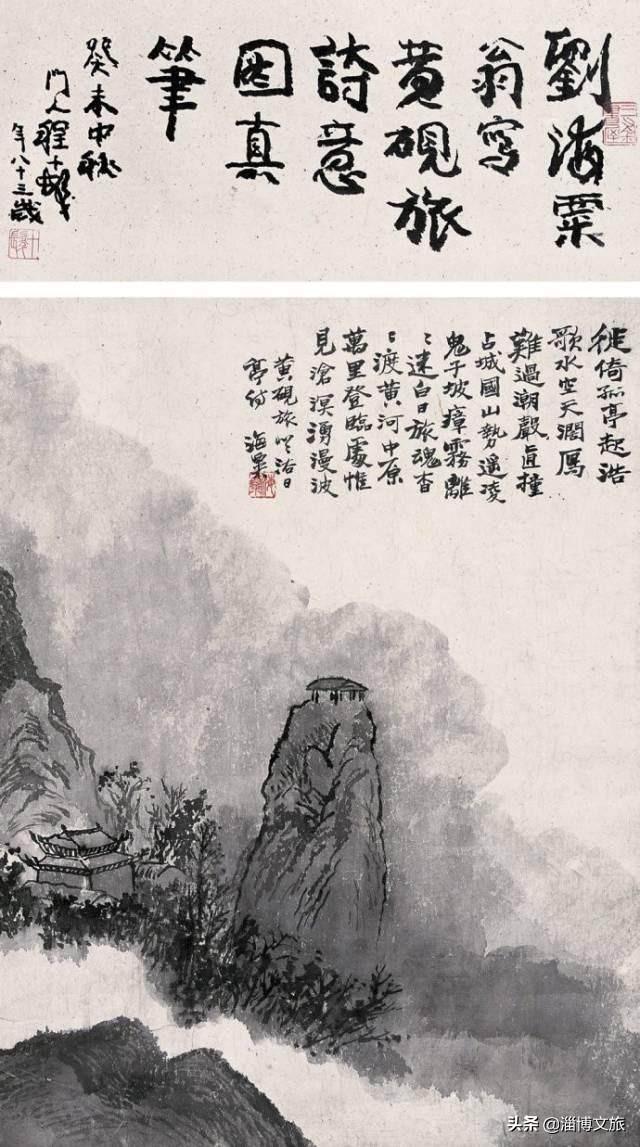 劉海粟
翁寫
黄硯旅
詩意
圖真
筆
癸未中秋
門人程十髮
年八十三歲
徙倚孤亭起浩
歌水空天濶厲
難過潮聲直撞
占城國山勢遥凌
鬼子坡瘴霧離
〻迷白日旅魂杳
〻渡黄河中原
萬里登臨處惟
見滄溟湧漫波
黄硯旅登浴日
亭詩 海粟
头条 @淄博文旅